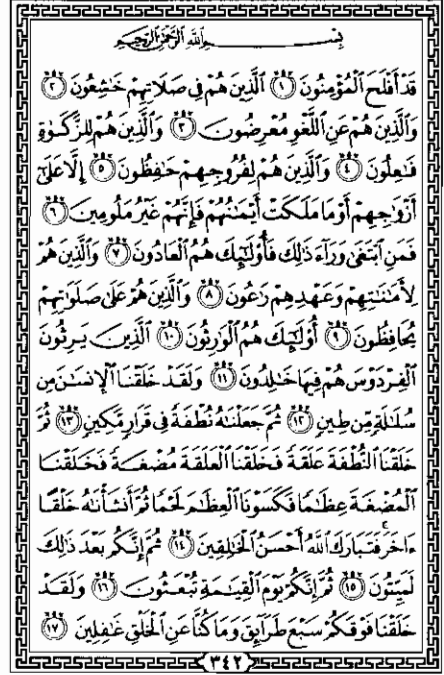 بِسْمِ ٱللَّهِ ٱلرَّحْمَٰنِ ٱلرَّحِيمِ
قَدْ أَفْلَحَ ٱلْمُؤْمِنُونَ ١ ٱلَّذِينَ هُمْ فِى صَلَاتِهِمْ خَٰشِعُونَ ٢
وَٱلَّذِينَ هُمْ عَنِ ٱللَّغْوِ مُعْرِضُونَ ٣ وَٱلَّذِينَ هُمْ لِلزَّكَوٰةِ
فَٰعِلُونَ ٤ وَٱلَّذِينَ هُمْ لِفُرُوجِهِمْ حَٰفِظُونَ ٥ إِلَّا عَلَىٰٓ
أَزْوَٰجِهِمْ أَوْ مَا مَلَكَتْ أَيْمَٰنُهُمْ فَإِنَّهُمْ غَيْرُ مَلُومِينَ ٦
فَمَنِ ٱبْتَغَىٰ وَرَآءَ ذَٰلِكَ فَأُو۟لَٰٓئِكَ هُمُ ٱلْعَادُونَ ٧ وَٱلَّذِينَ هُمْ
لِأَمَٰنَٰتِهِمْ وَعَهْدِهِمْ رَٰعُونَ ٨ وَٱلَّذِينَ هُمْ عَلَىٰ صَلَوَٰتِهِمْ
يُحَافِظُونَ ٩ أُو۟لَٰٓئِكَ هُمُ ٱلْوَٰرِثُونَ ١٠ ٱلَّذِينَ يَرِثُونَ
ٱلْفِرْدَوْسَ هُمْ فِيهَا خَٰلِدُونَ ١١ وَلَقَدْ خَلَقْنَا ٱلْإِنسَٰنَ مِن
سُلَٰلَةٍ مِّن طِينٍ ١٢ ثُمَّ جَعَلْنَٰهُ نُطْفَةً فِى قَرَارٍ مَّكِينٍ ١٣ ثُمَّ
خَلَقْنَا ٱلنُّطْفَةَ عَلَقَةً فَخَلَقْنَا ٱلْعَلَقَةَ مُضْغَةً فَخَلَقْنَا
ٱلْمُضْغَةَ عِظَٰمًا فَكَسَوْنَا ٱلْعِظَٰمَ لَحْمًا ثُمَّ أَنشَأْنَٰهُ خَلْقًا
ءَاخَرَ ۚ فَتَبَارَكَ ٱللَّهُ أَحْسَنُ ٱلْخَٰلِقِينَ ١٤ ثُمَّ إِنَّكُم بَعْدَ ذَٰلِكَ
لَمَيِّتُونَ ١٥ ثُمَّ إِنَّكُمْ يَوْمَ ٱلْقِيَٰمَةِ تُبْعَثُونَ ١٦ وَلَقَدْ
خَلَقْنَا فَوْقَكُمْ سَبْعَ طَرَآئِقَ وَمَا كُنَّا عَنِ ٱلْخَلْقِ غَٰفِلِينَ ١٧
٣٤٢